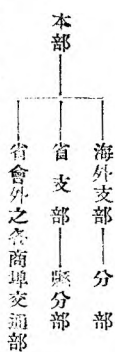 本部
海外支部
分部
省支部
縣分部
省會外之各商埠交通部